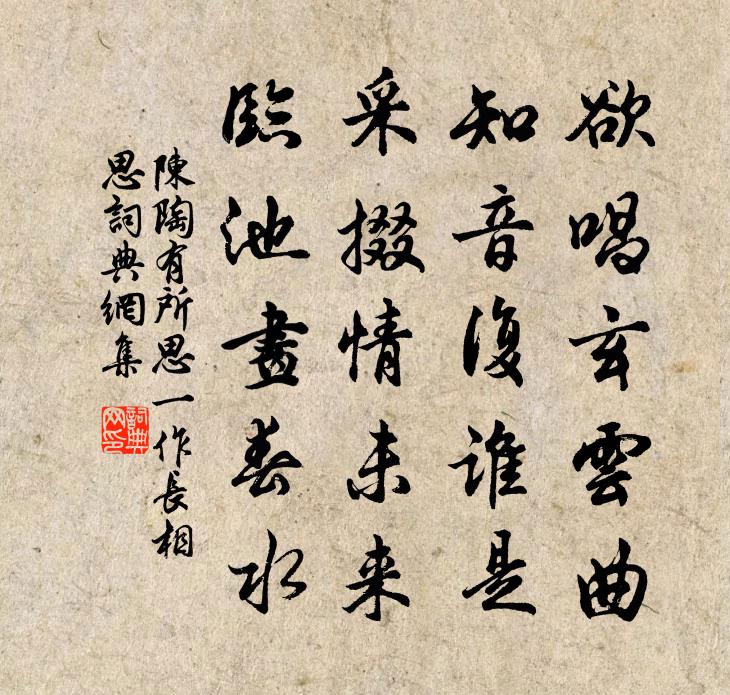 欲唱玄雲曲
知音復誰是
采掇情未来
臨池畫春水
陳陶有所思一作長相
思詞典網集
詞典
网印